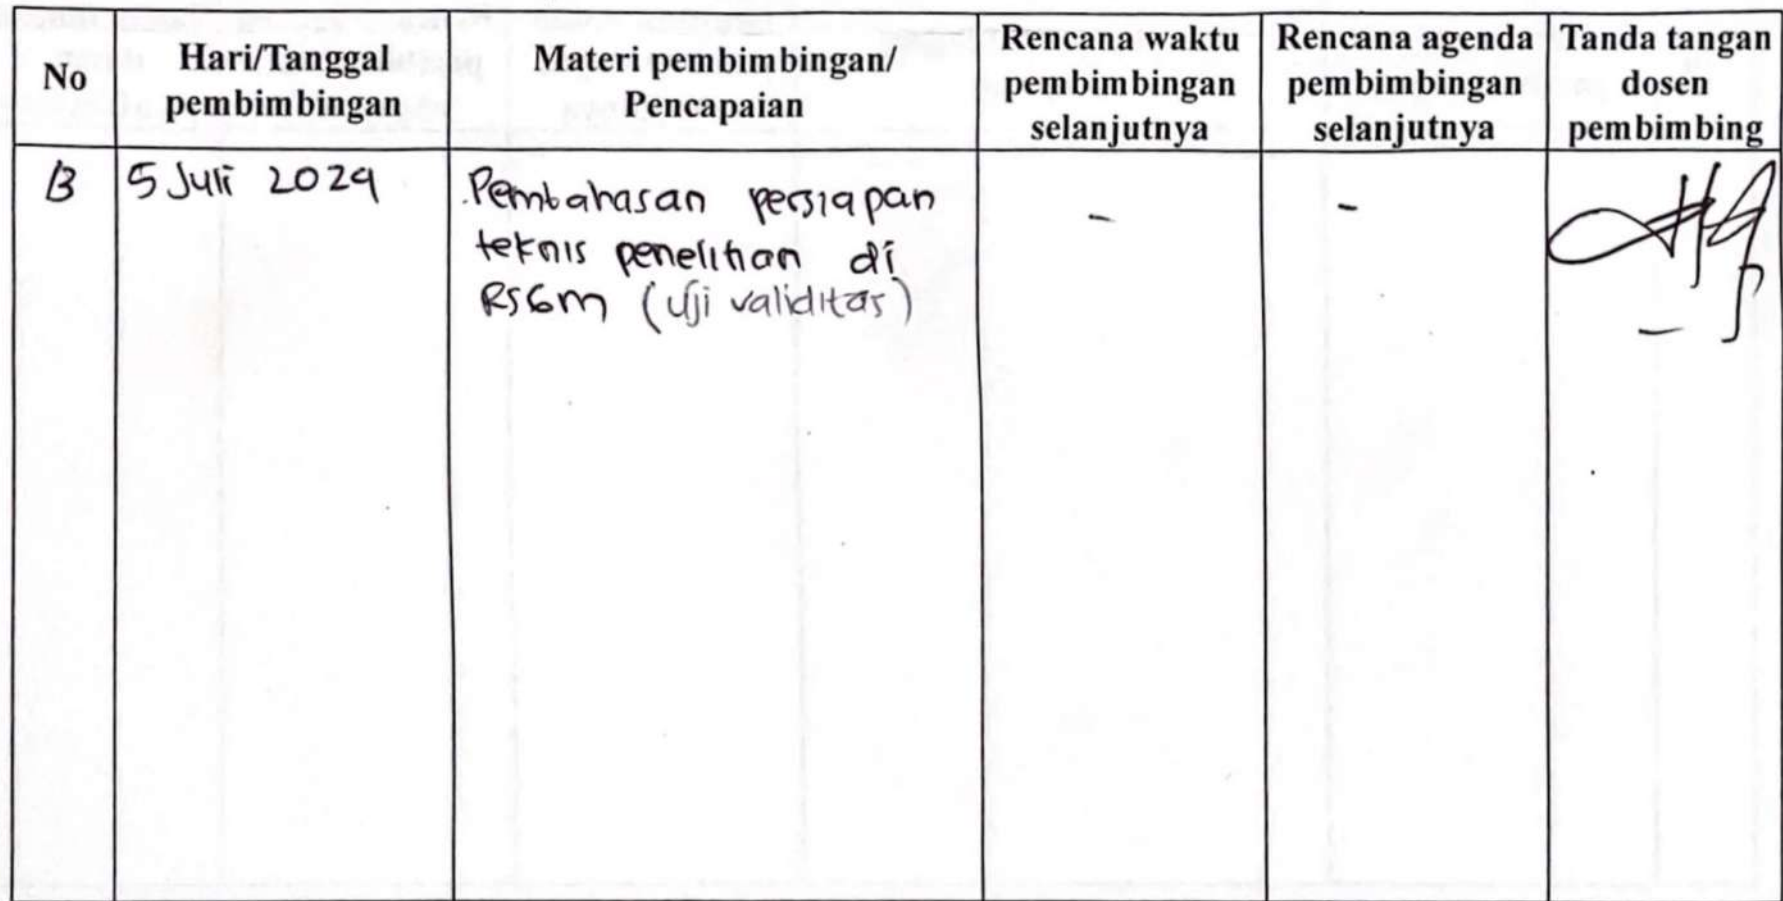 No
Hari/Tanggal
pembimbingan
Materi pembimbingan/
Pencapaian
Rencana waktu
pembimbingan
selanjutnya
Rencana agenda
pembimbingan
selanjutnya
Tanda tangan
dosen
pembimbing
13
5 Juli 2024
Pembahasan persiapan
teknis penelitian di
RSGM (Uji validitas)
-
-